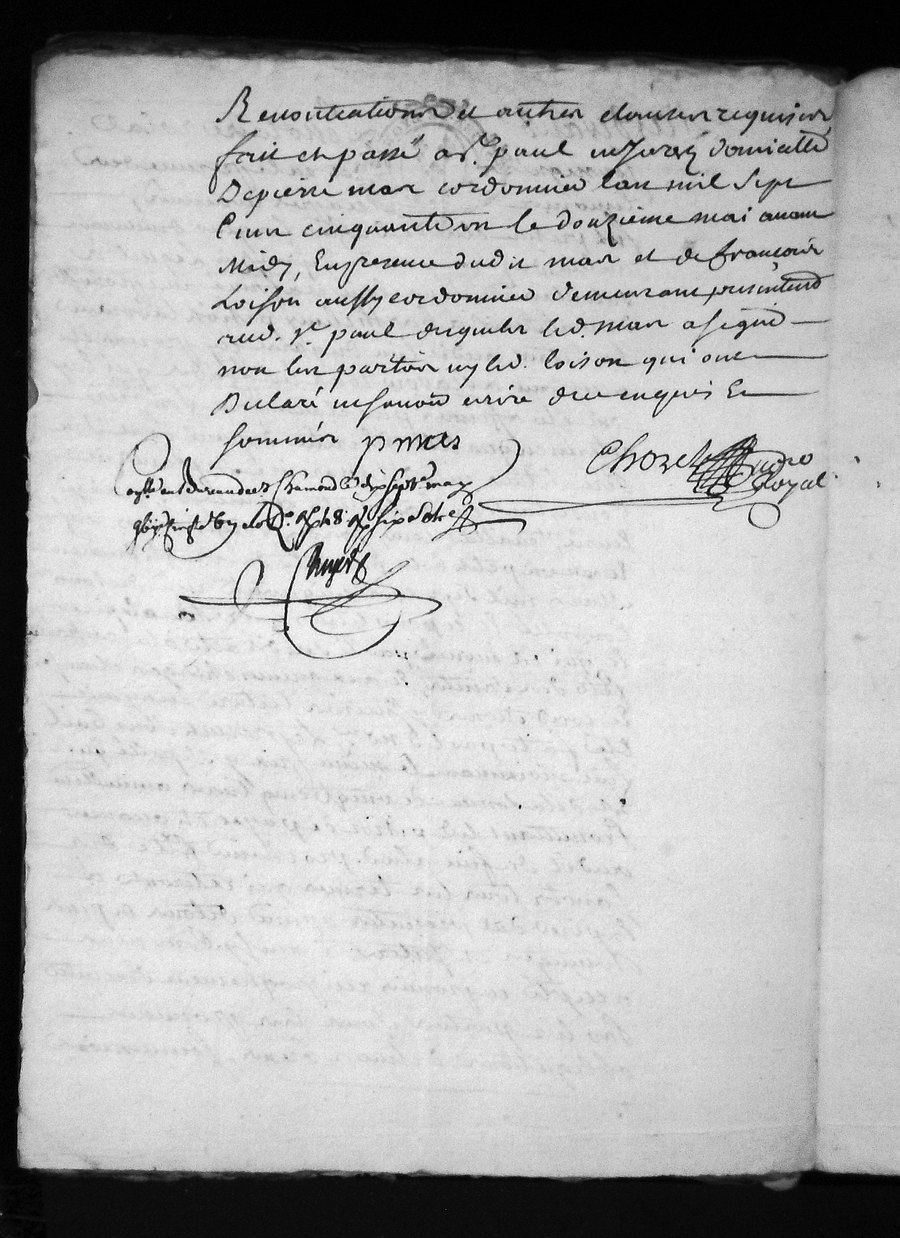 Renontiations et autres clauses requises
fait et passé a St. paul en Jarez domicille
De pierre mas cordonnier l'an mil sept
Cens cinquante un le douzieme mai avant
Midy, En presence dudit mas et de francois
Loison aussy cordonnier demeurant
aud. St. paul desquels led. mas a signé
non les parties ny led. loison qui ont
Declaré ne savoir ecrire de ce enquis Et
sommés p mas
Chorel no.re Royal
Chamond le dix sept may